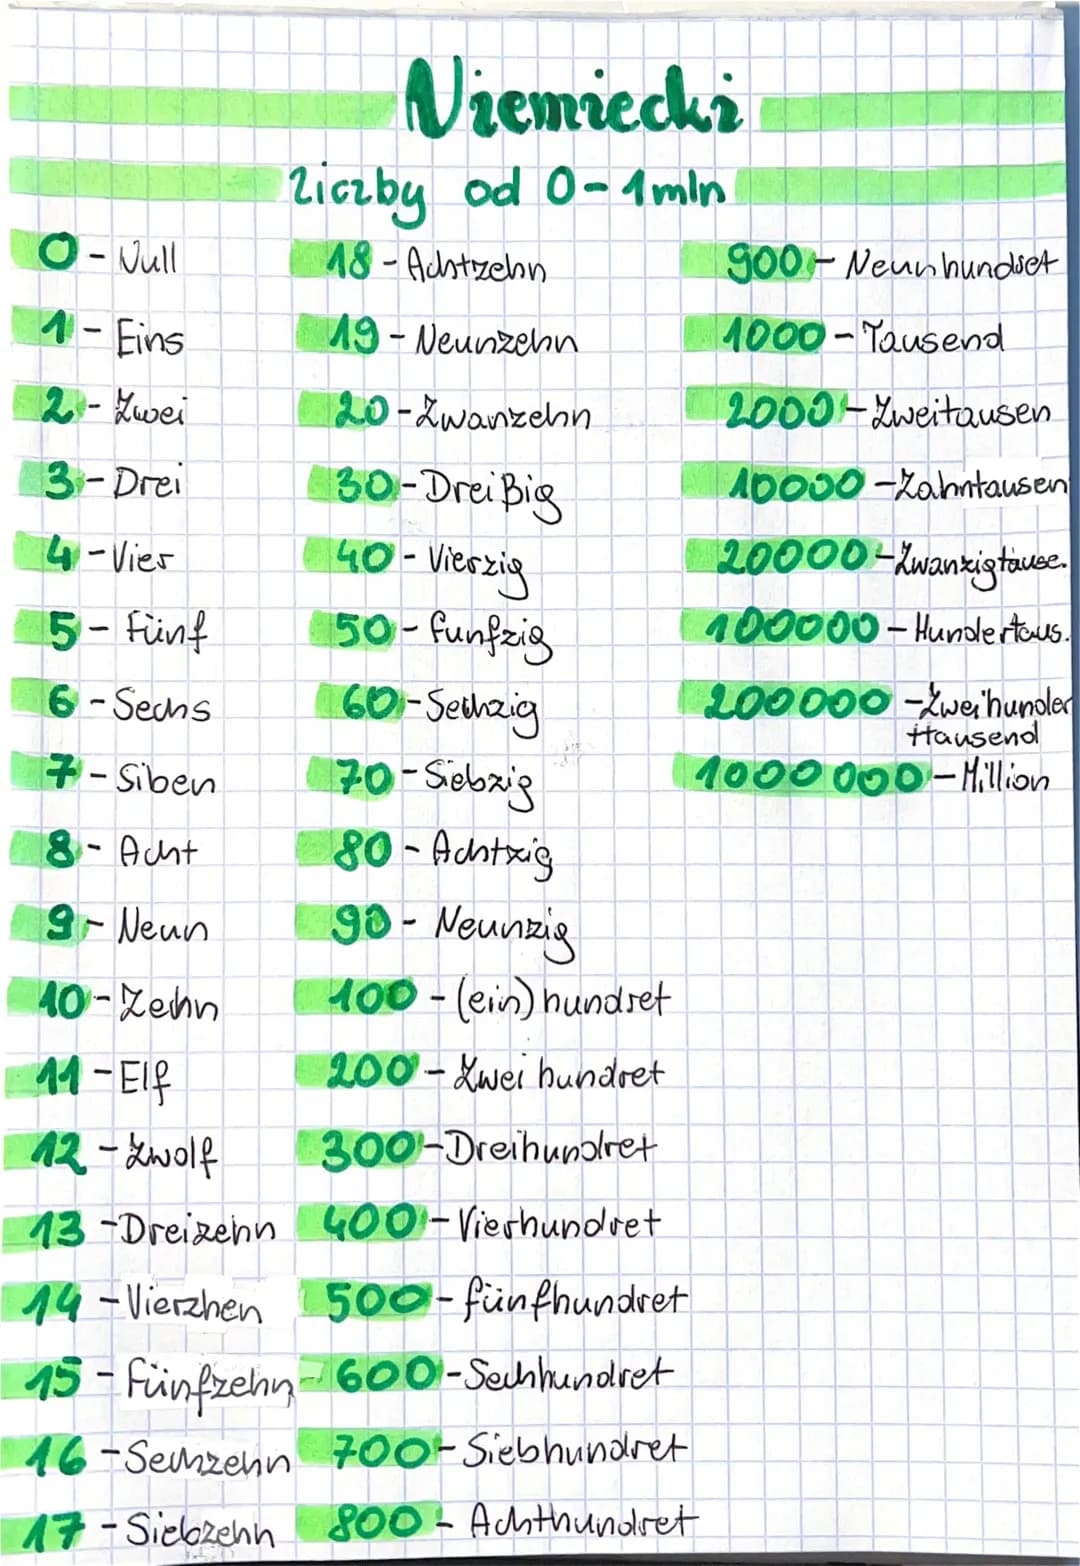 Niemiecki
liczby od 0-1mln
0 - Null
1 - Eins
2 - Zwei
3 - Drei
4 - Vier
5 - Fünf
6 - Sechs
7 - Siben
8 - Acht
9 - Neun
10 - Zehn
11 - Elf
12 - Zwolf
13 - Dreizehn
14 - Vierzhen
15 - Fünfzehn
16 - Sechzehn
17 - Siebzehn
18 - Achtzehn
19 - Neunzehn
20 - Zwanzehn
30 - Dreißig
40 - Vierzig
50 - funfzig
60 - Sechzig
70 - Siebzig
80 - Achtzig
90 - Neunzig
100 - (ein) hundret
200 - Zwei hundret
300 - Dreihundret
400 - Vierhundret
500 - fünfhundret
600 - Sechhundret
700 - Siebhundret
800 - Achthundret
900 - Neunhundret
1000 - Tausend
2000 - Zweitausen
10000 - Zahntausen
20000 - Zwanzigtause.
100000 - Hundertaus.
200000 - Zweihunder
ttausend
1000 000 - Million